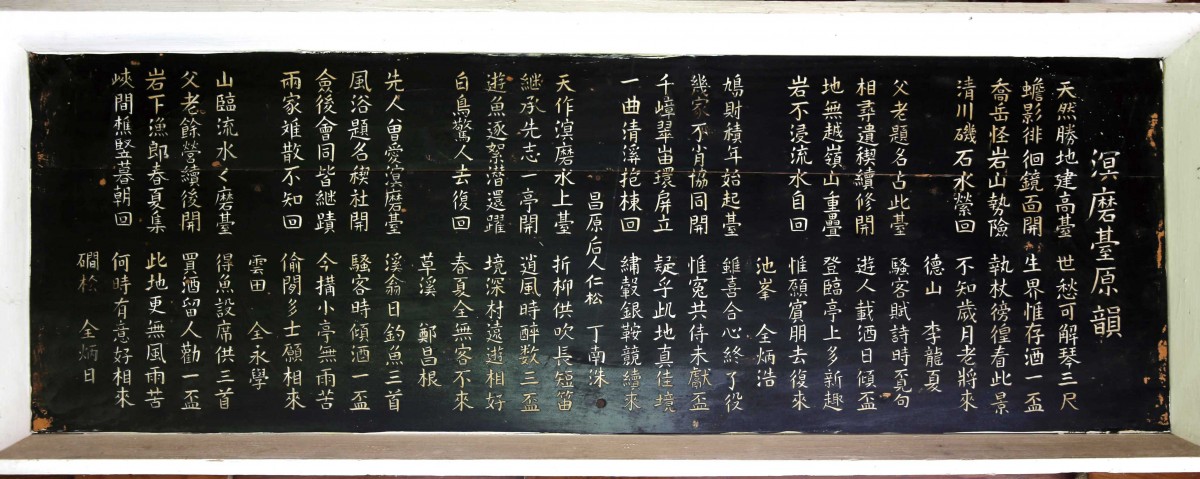 溟磨臺原韻
天然勝地建高臺 世愁可解琴三尺
蟾影徘徊鏡面開 生界惟存酒一盃
喬岳怪岩山勢險 執杖徬徨看此景
清川磯石水縈回 不知歲月老將來
德山 李龍夏
父老題名占此臺 騷客賦詩時覔句
相尋遺稧續修開 遊人載酒日傾盃
地無越嶺山重疊 登臨亭上多新趣
岩不浸流水自回 惟願賓朋去復來
池峯 全炳浩
鳩財積年始起臺 雖喜合心終了役
幾家不肖協同開 惟寃共侍未獻盃
千嶂翠環屏立 疑乎此地真佳境
一曲清溪抱棟回 繡轂銀鞍競續來
昌原后人仁松 丁南洙
天作溟磨水上臺 折柳供吹長短笛
継承先志一亭開 逍風時醉数三盃
遊魚逐絮潜還躍 境深村遠遊相好
白鳥驚人去復回 春夏全無客不來
草溪 鄭昌根
先人曽愛溟磨臺 溪翁日釣魚三首
風浴題名稧社開 騷客時傾酒一盃
會後會同皆継蹟 今搆小亭無雨苦
兩家难散不知回 偷閒多士願相來
雲田 全永學
山臨流水々磨臺 得魚設席供三首
父老餘營續後開 買酒留人勸一盃
岩下漁郎春夏集 此地更無風雨苦
峽間樵竪暮朝回 何時有意好相來
磵松 全炳日